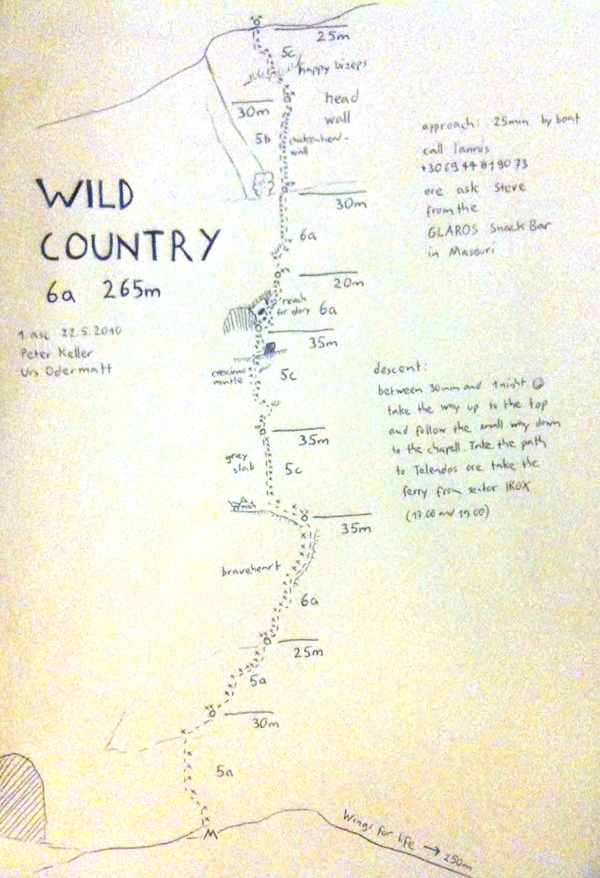 25m
5c
happy bizeps
30m
head
wall
5b
chickenhead-
wall
30m
6a
20m
reach
for glory
6a
35m
5c
35m
grey
slab
5c
35m
braveheart
6a
25m
5a
30m
5a
WILD
COUNTRY
6a 265m
1. asc. 22.5.2010
Peter Keller
Urs Odermatt
approach: 25min by boat
call Iannis
+30 69 44 81 90 73
ore ask Steve
from the
GLAROS Snack Bar
in Masouri
descent:
between 30min and 1 night
take the way up to the top
and follow the small way down
to the chapell. Take the path
to Telendos ore take the
ferry from sector IROX
(17.00 and 19.00)
Wings for life → 250m